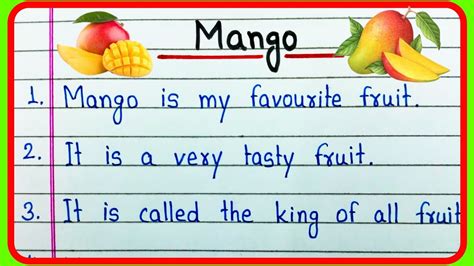 Mango
1. Mango is my favourite fruit.
2. It is a very tasty fruit.
3. It is called the king of all fruit